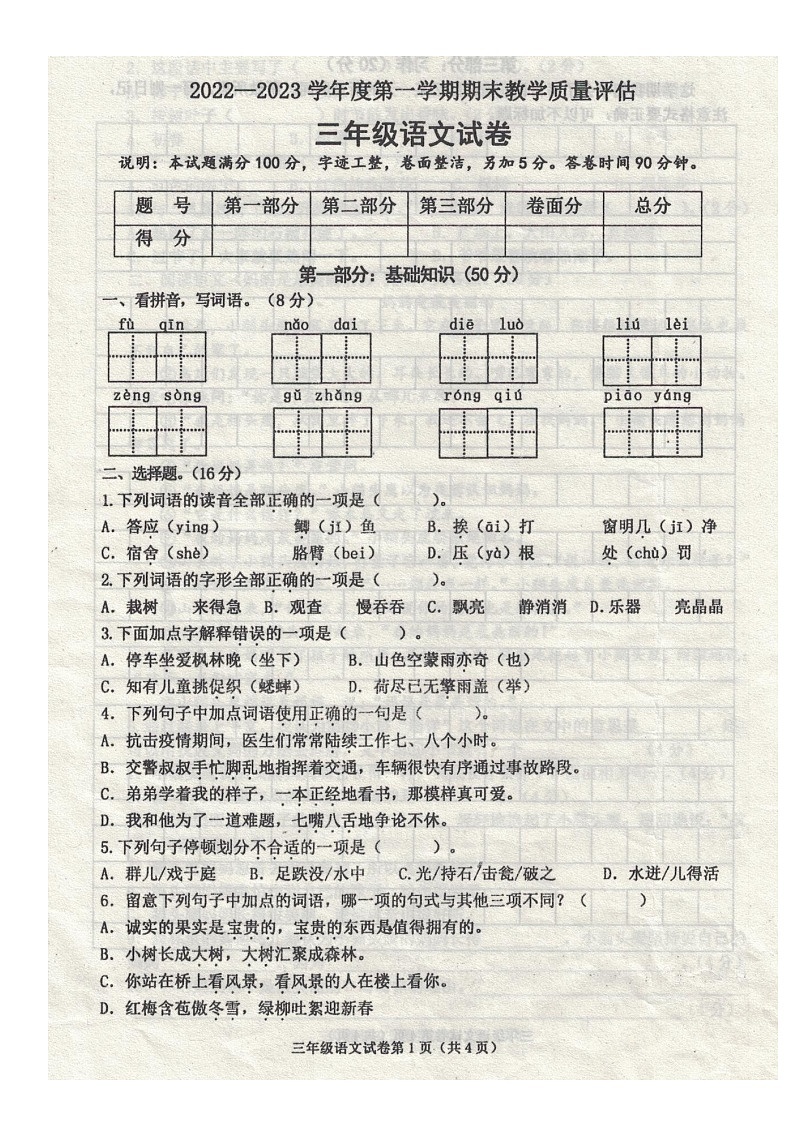 2022--2023 学年度第一学期期末教学质量评估
三年级语文试卷
说明：本试题满分 100 分，字迹工整，卷面整洁，另加 5 分。答卷时间 90 分钟。
题 号 第一部分 第二部分 第三部分 卷面分 总分
得 分
第一部分：基础知识（50 分）
一、看拼音，写词语。（8 分）
fù qīn nǎo dai diē luò liú lèi
zèng sòng gǔ zhǎng róng qiú piāo yáng
二、选择题。（16 分）
1.下列词语的读音全部正确的一项是（ ）。
A．答应（yìng） 鲫（jǐ）鱼 B．挨（āi）打 窗明几（jī）净
C．宿舍（shè） 胳臂（bei） D．压（yà）根 处（chù）罚
2.下列词语的字形全部正确的一项是（ ）。
A．栽树 来得急 B．观查 慢吞吞 C．飘亮 静消消 D.乐器 亮晶晶
3.下面加点字解释错误的一项是（ ）。
A．停车坐爱枫林晚（坐下） B．山色空蒙雨亦奇（也）
C．知有儿童挑促织（蟋蟀） D．荷尽已无擎雨盖（举）
4．下列句子中加点词语使用正确的一句是（ ）。
A．抗击疫情期间，医生们常常陆续工作七、八个小时。
B．交警叔叔手忙脚乱地指挥着交通，车辆很快有序通过事故路段。
C．弟弟学着我的样子，一本正经地看书，那模样真可爱。
D．我和他为了一道难题，七嘴八舌地争论不休。
5.下列句子停顿划分不合适的一项是（ ）。
A．群儿/戏于庭 B．足跌没/水中 C.光/持石/击瓮/破之 D．水迸/儿得活
6．留意下列句子中加点的词语，哪一项的句式与其他三项不同？（ ）
A．诚实的果实是宝贵的，宝贵的东西是值得拥有的。
B．小树长成大树，大树汇聚成森林。
C．你站在桥上看风景，看风景的人在楼上看你。
D．红梅含苞傲冬雪，绿柳吐絮迎新春
三年级语文试卷第 1 页（共 4 页）